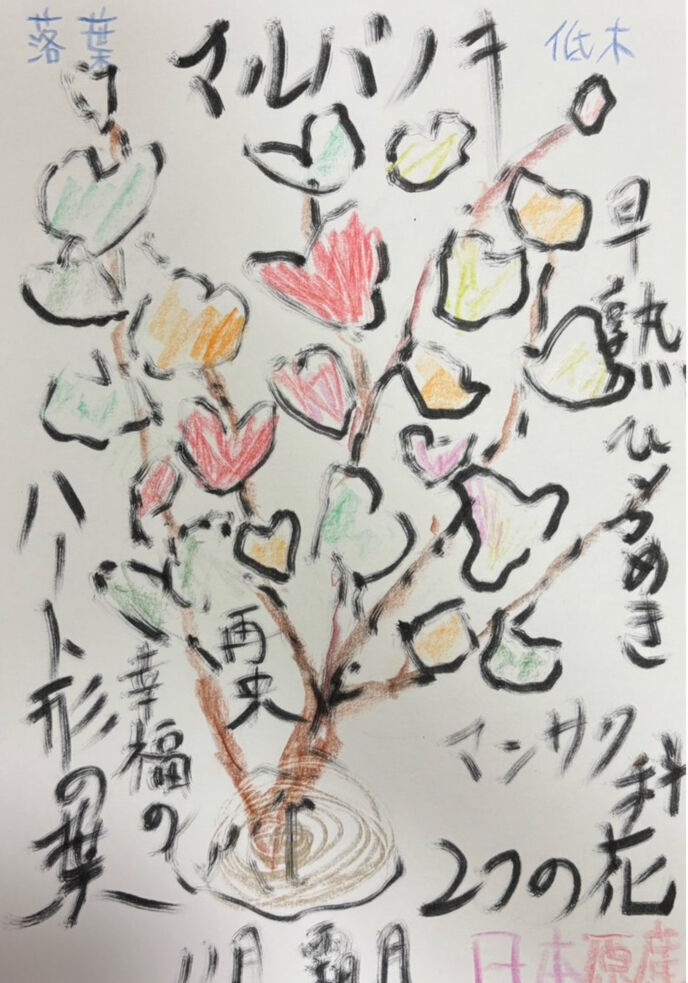 落葉
マルバノキ
低木
早熟
ひらめき
ハート形の葉
幸福の
再来
マンサク科
2つの花
11月 霜月
日本原産